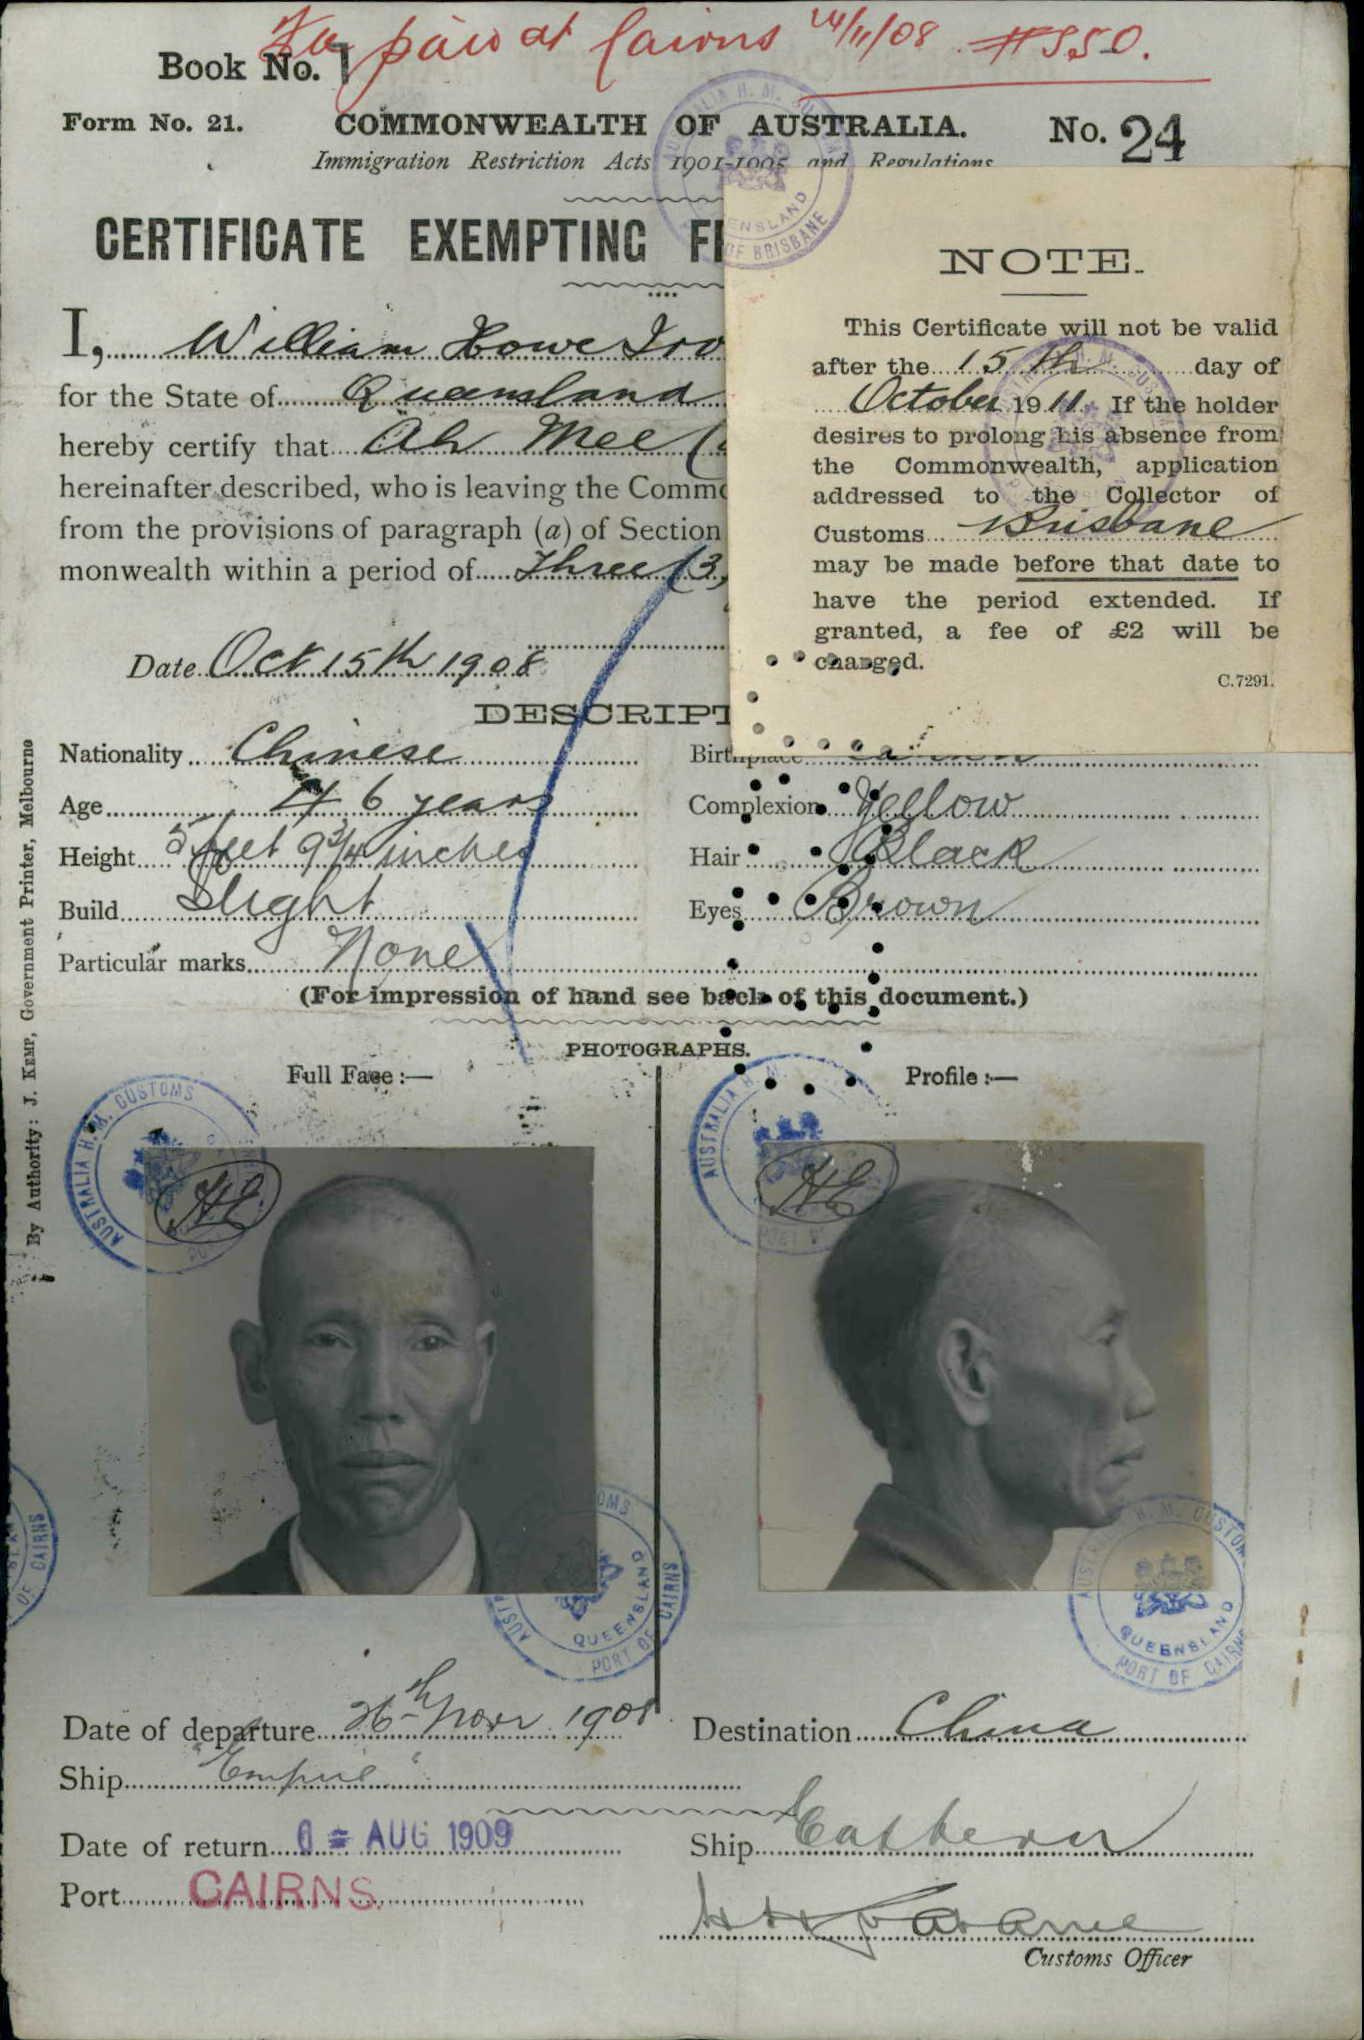 Fee paid at Cairns 24/11/08 #550.
Book No. 1
Form No. 21. COMMONWEALTH OF AUSTRALIA. No. 24
Immigration Restriction Acts 1901-1905 and Regulations
CERTIFICATE EXEMPTING
I, William Howe Iro
for the State of Queensland
hereby certify that Ah Mee
hereinafter described, who is leaving the Commo
from the provisions of paragraph (a) of Section
monwealth within a period of Three (3)
Date Oct 15th 1908
NOTE.
This Certificate will not be valid
after the 15th day of
October 1911. If the holder
desires to prolong his absence from
the Commonwealth, application
addressed to the Collector of
Customs Brisbane
may be made before that date to
have the period extended. If
granted, a fee of £2 will be
charged.
C.7291.
DESCRIPT
Nationality Chinese Birthplace
Age 46 years Complexion Yellow
Height 5 feet 9 3/4 inches Hair Black
Build Slight Eyes Brown
Particular marks None
(For impression of hand see back of this document.)
PHOTOGRAPHS.
Full Face :— Profile :—
AUSTRALIA H. M. CUSTOMS
AUSTRALIA H. M.
HE HE
QUEENSLAND
PORT OF CAIRNS
QUEENSLAND
PORT OF CAIRNS
OF CAIRNS
Date of departure 26th Novr 1908 Destination China
Ship "Empire"
Date of return 6 = AUG 1909 Ship Eastern
Port CAIRNS.
Customs Officer
By Authority: J. KEMP, Government Printer, Melbourne